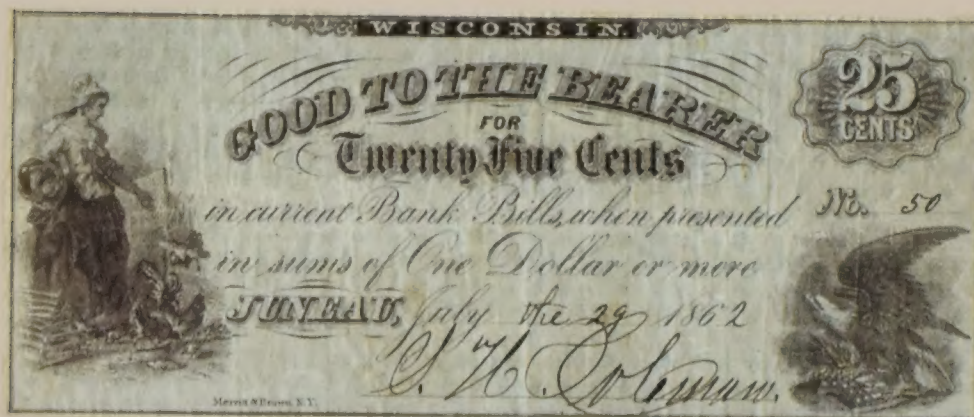 WISCONSIN.
GOOD TO THE BEARER
FOR
Twenty Five Cents
25
CENTS
in current Bank Bills, when presented
No. 50
in sums of One Dollar or more
JUNEAU, July the 29 1862
S. H. Coleman.
Merritt & Brown, N.Y.